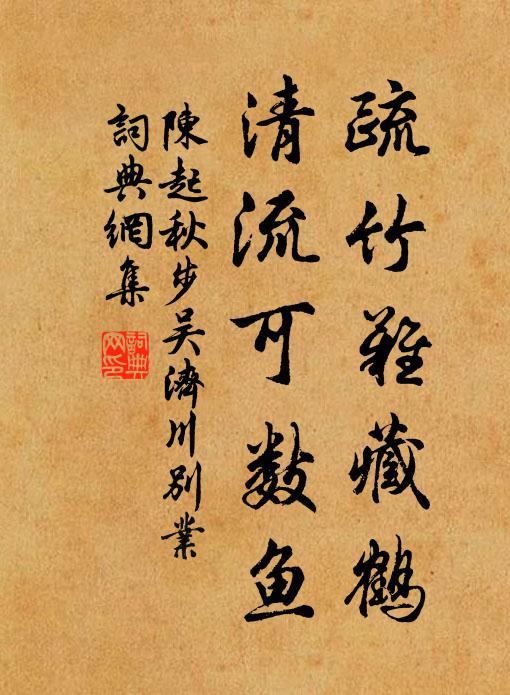 疏竹難藏鶴
清流可数鱼
陳起秋步吴濟川别業
詞典網集
詞典網印